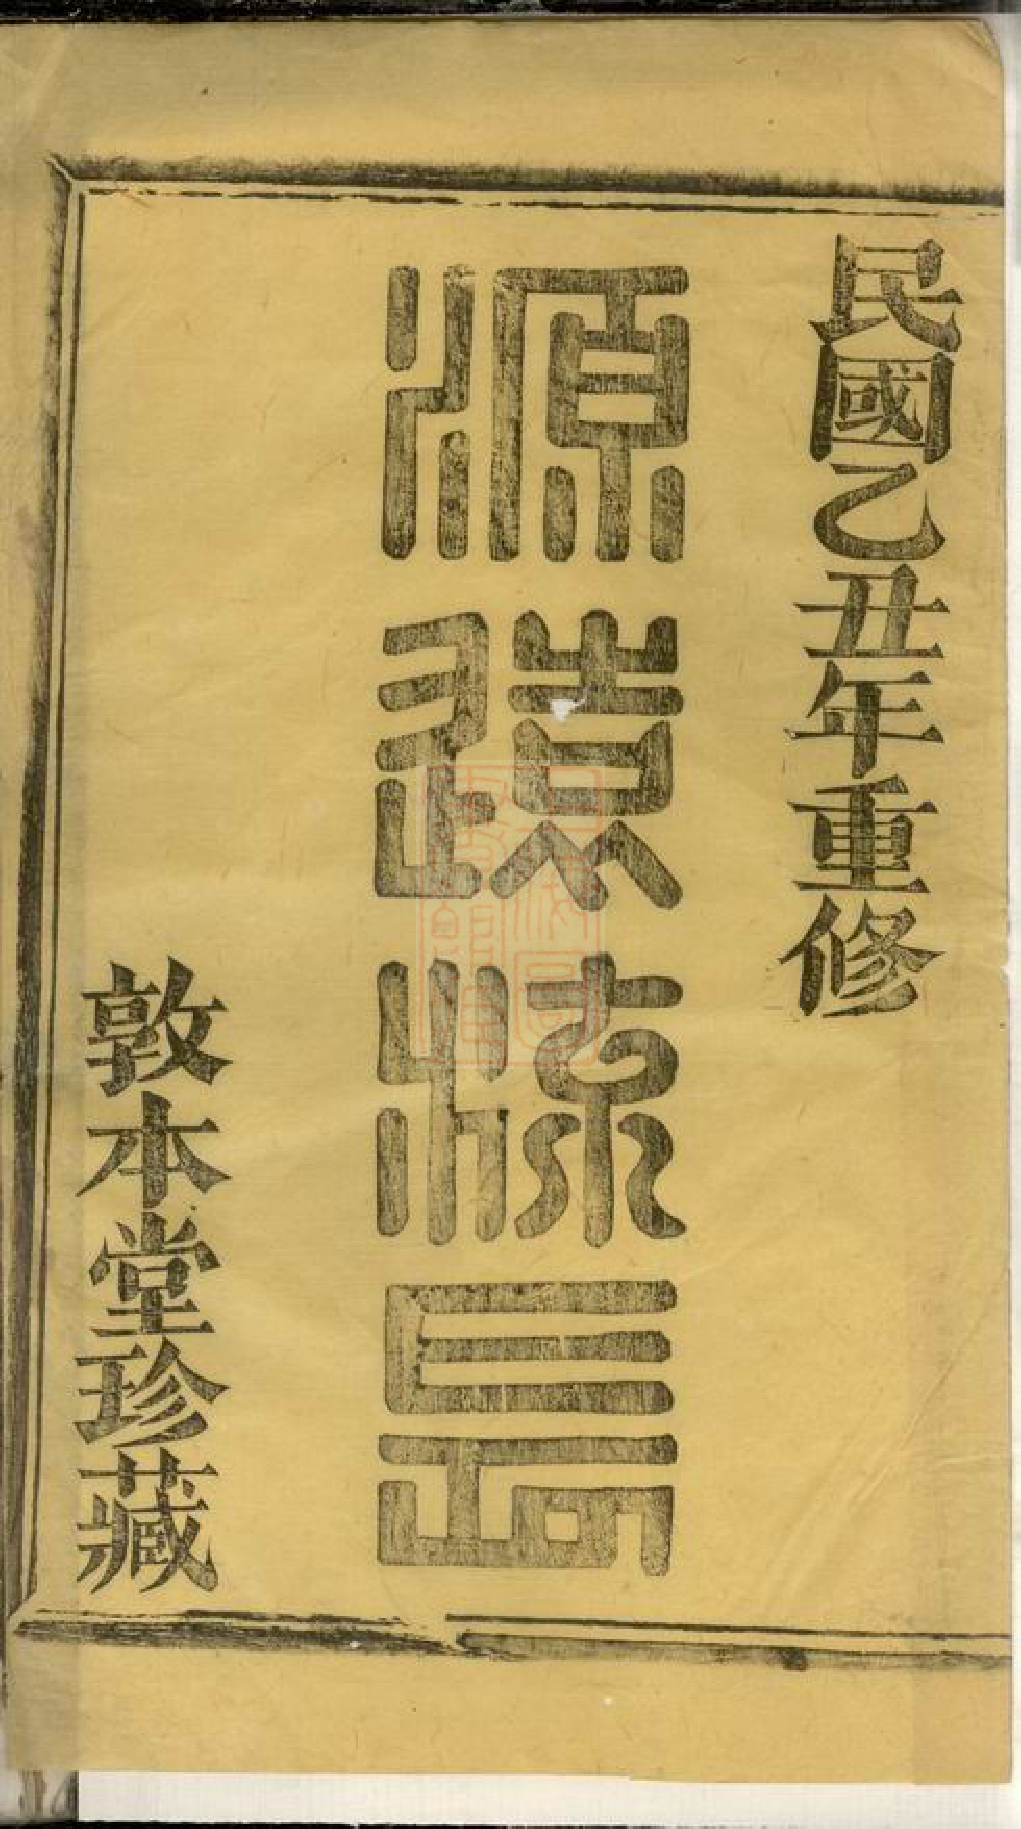 民國乙丑年重修
源遠流長
敦本堂珍藏